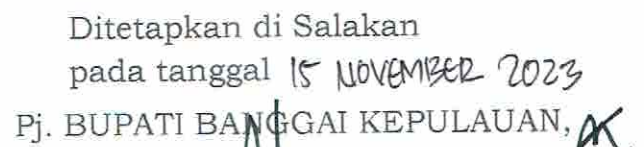 Ditetapkan di Salakan
pada tanggal 15 NOVEMBER 2023
Pj. BUPATI BANGGAI KEPULAUAN,